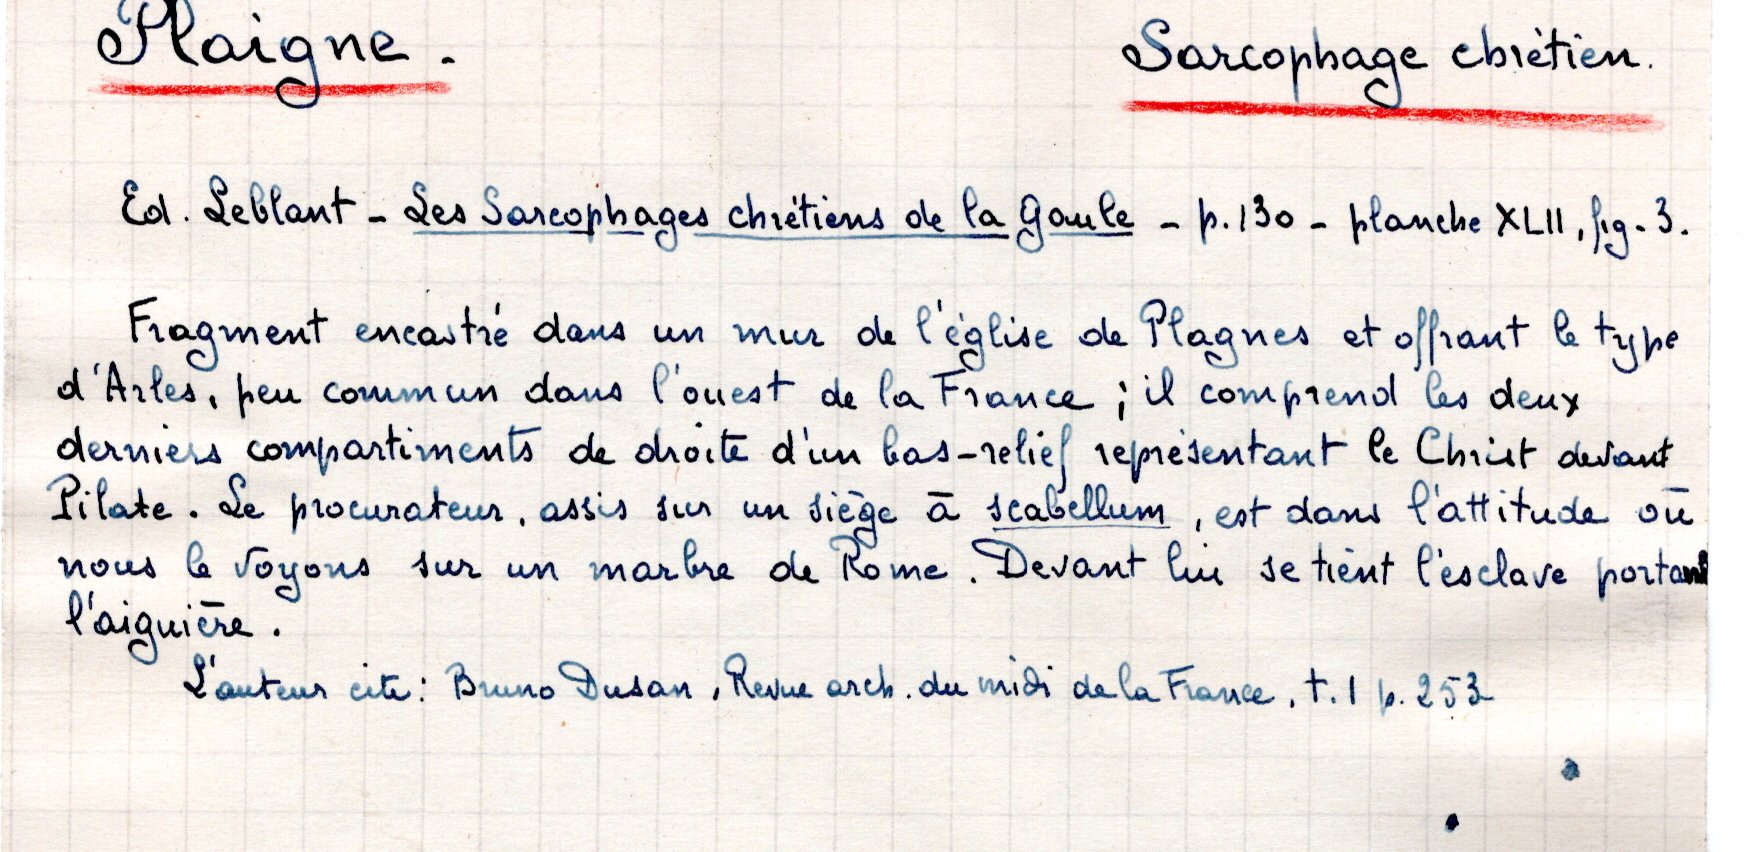 Plaigne. Sarcophage chrétien.
Ed. Leblant - Les Sarcophages chrétiens de la Gaule - p. 130 - planche XLII, fig. 3.
Fragment encastré dans un mur de l'église de Plagnes et offrant le type
d'Arles, peu commun dans l'ouest de la France ; il comprend les deux
derniers compartiments de droite d'un bas-relief représentant le Christ devant
Pilate. Le procurateur, assis sur un siège à scabellum, est dans l'attitude où
nous le voyons sur un marbre de Rome. Devant lui se tient l'esclave portant
l'aiguière.
L'auteur cite : Bruno Dusan, Revue arch. du midi de la France, t. 1 p. 253